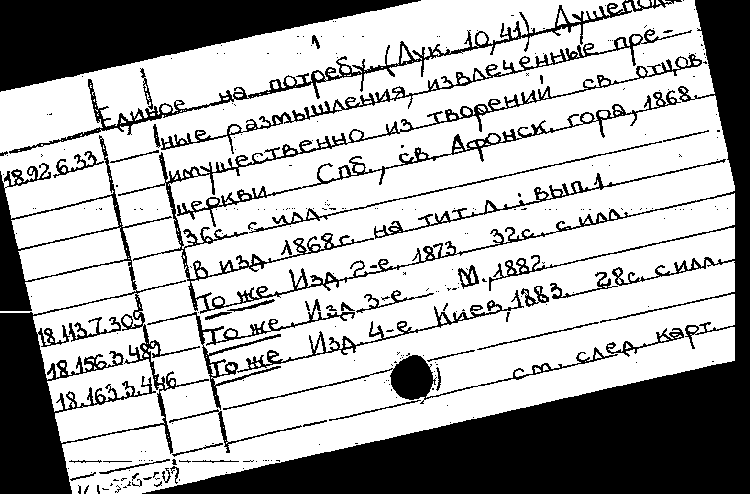 1
Единое на потребу. (Лук. 10,41). Душеполез-
18.92.6.33 ные размышления, извлеченные пре-
имущественно из творений св. отцов
церкви. Спб., св. Афонск. гора, 1868.
36с. с илл.
В изд. 1868г. на тит. л.: вып. 1.
18.113.7.309 То же. Изд. 2-е. 1873. 32с. с илл.
18.156.3.489 То же. Изд. 3-е. М., 1882.
18.163.3.446 То же. Изд. 4-е. Киев, 1883. 28с. с илл.
см. след. карт.